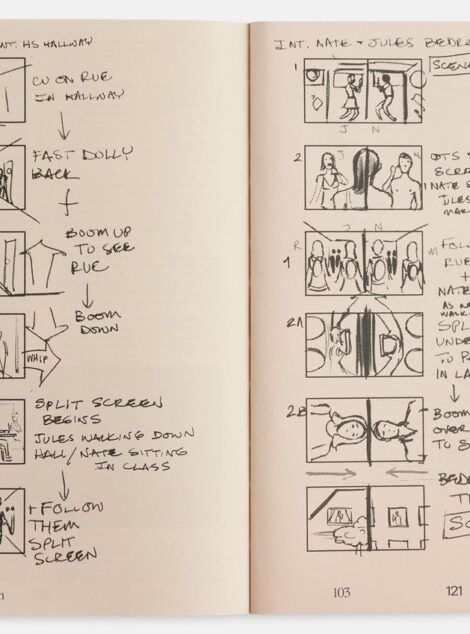 INT. HS HALLWAY
CU ON RUE
IN HALLWAY
FAST DOLLY
BACK
BOOM UP
TO SEE
RUE
BOOM
DOWN
WHIP
SPLIT SCREEN
BEGINS
JULES WALKING DOWN
HALL/NATE SITTING
IN CLASS
+ FOLLOW
THEM
SPLIT
SCREEN
INT. NATE + JULES
1
J N
2
J N
OTS
NATE
JULES
J N
R
1
RUE
+
NATE
AS
2A
SPL
UNDE
TO
IN LA
2B
BOOM
OVER
TO S
103
121